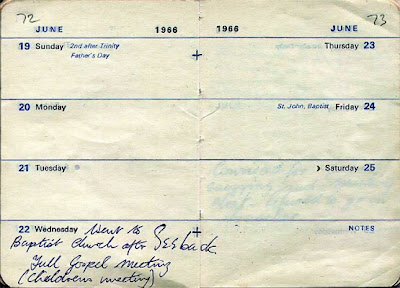 72
JUNE 1966
19 Sunday 2nd after Trinity
Father's Day
20 Monday
21 Tuesday
22 Wednesday Went to
Baptist Church after
Full Gospel Meeting
(Childrens meeting)
73
1966 JUNE
Thursday 23
St. John, Baptist Friday 24
Saturday 25
NOTES